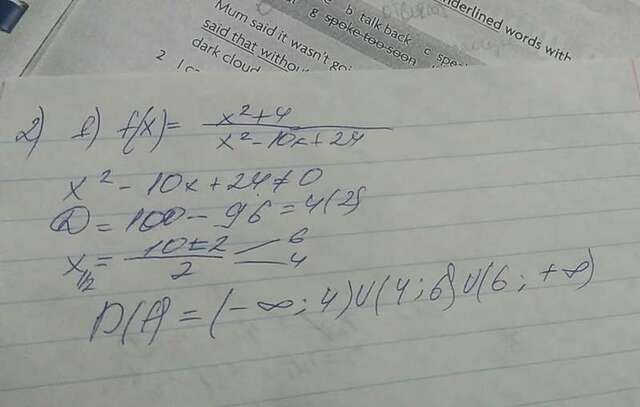 derlined words with
b talk back c spe
g spoke too soon
Mum said it wasn't go
said that withou
dark cloud
2 I ca
2) 1) f(x) = x²+4 / x²-10x+24
x²-10x+24≠0
D=100-96=4(2)
x1/2 = 10±2 / 2 6 4
D(f) = (-∞; 4)U(4; 6)U(6; +∞)